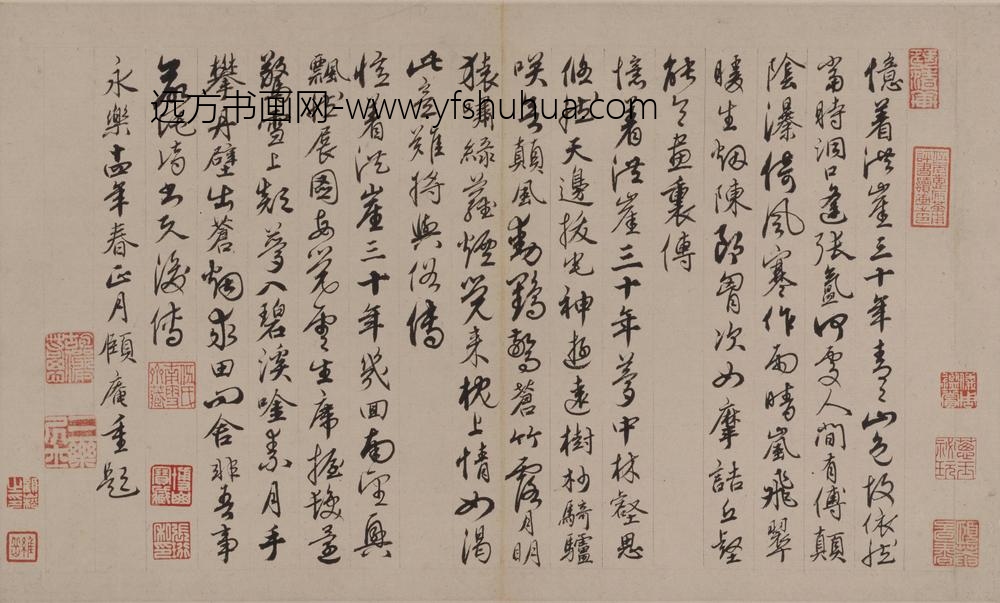 憶着洪崖三十年青々山色故依然
當時洞口逢張氳何處人間有傅顛
陰瀑倚風寒作雨晴嵐飛翠
暖生烟陳郎胷次如摩詰丘壑
能令畫裏傳
憶着洪崖三十年夢中林壑思
悠然天邊拔宅神遊遠樹杪騎驢
咲 顛風動鶴驚蒼竹露月明
猿嘯緑蘿煙覺来枕上情如渴
此意難將與俗傳
憶着洪崖三十年幾回南望興
飄然展圖每覺雲生席握髮還
驚雪上顛夢入碧溪唫素月手
攀丹壁出蒼烟求田問舍非吾事
後傳
永樂十四年春正月頤庵重題
远方书画网-www.yfshuhua.com